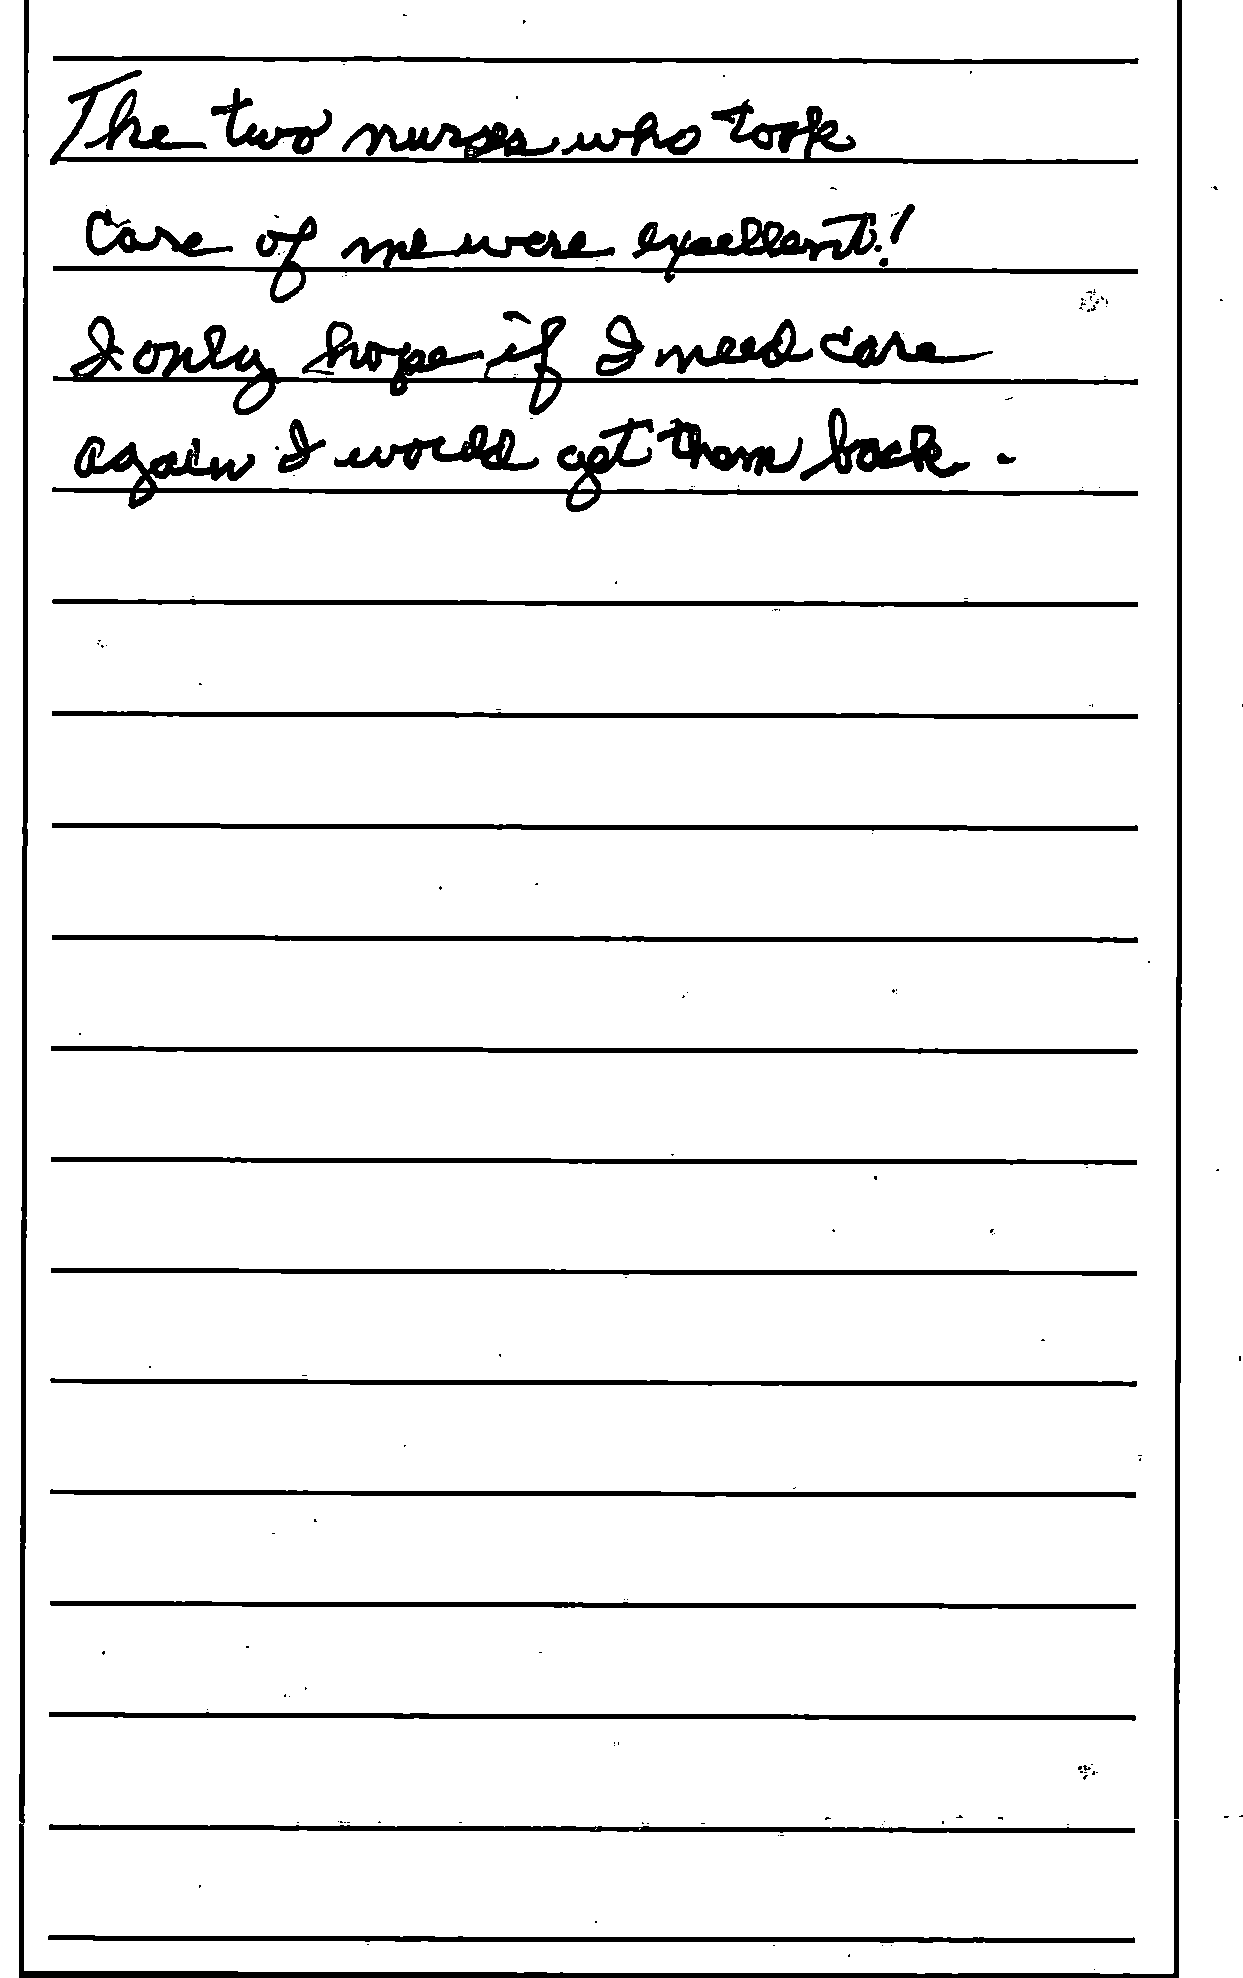 The two nurses who took
care of me were excellent!
I only hope if I need care
again I would get them back.